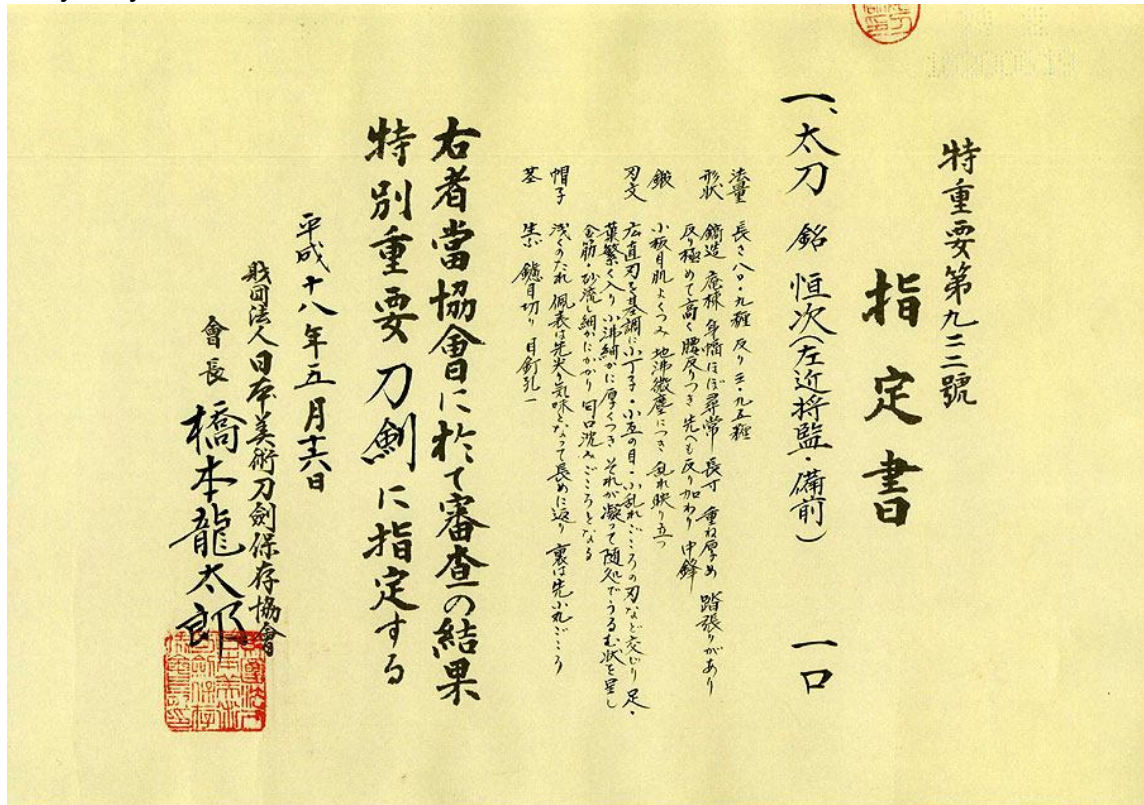 特重要第九二二號
指定書
一、太刀 銘 恒次(左近将監・備前) 一口
法量 長さ八〇・九糎 反り三・九五糎
形状 鎬造 庵棟 身幅ほぼ尋常 長寸 重ね厚め 踏張りがあり
反り極めて高く腰反りつき 先へも反り加わり 中鋒
鍛 小板目肌よくつみ 地沸微塵につき 乱れ映り立つ
刃文 広直刃を基調に小丁子・小互の目・小乱れごころの刃など交じり 足・
葉繁く入り 小沸細かに厚くつき それが凝って随処でうるむ状を呈し
金筋・砂流し細かにかかり 匂口沈みごころとなる
帽子 浅くのたれ 佩表は先尖り気味となって長めに返り 裏は先小丸ごころ
茎 生ぶ 鑢目切り 目釘孔一
右者當協會に於て審査の結果
特別重要刀劍に指定する
平成十八年五月十六日
財団法人日本美術刀劍保存協會
會長 橋本龍太郎